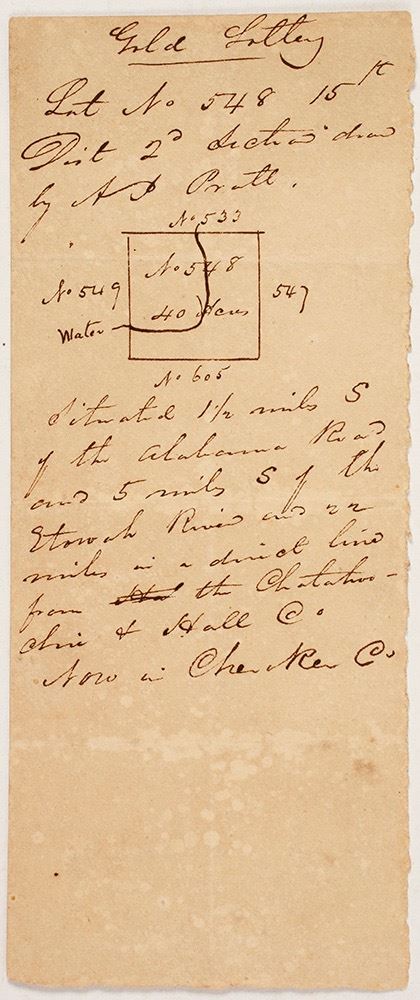 Gold Lottery
Lot No 548 15th
Dist 2d Section draw
by A D Pratt.
No 533
No 548
No 549
547
40 Acres
Water
No 605
Situated 1 1/2 miles S
of the Alabama Road
and 5 miles S of the
Etowah River and 22
miles in a direct line
from the Chatahoo-
chie & Hall Co
Now in Cherokee Co